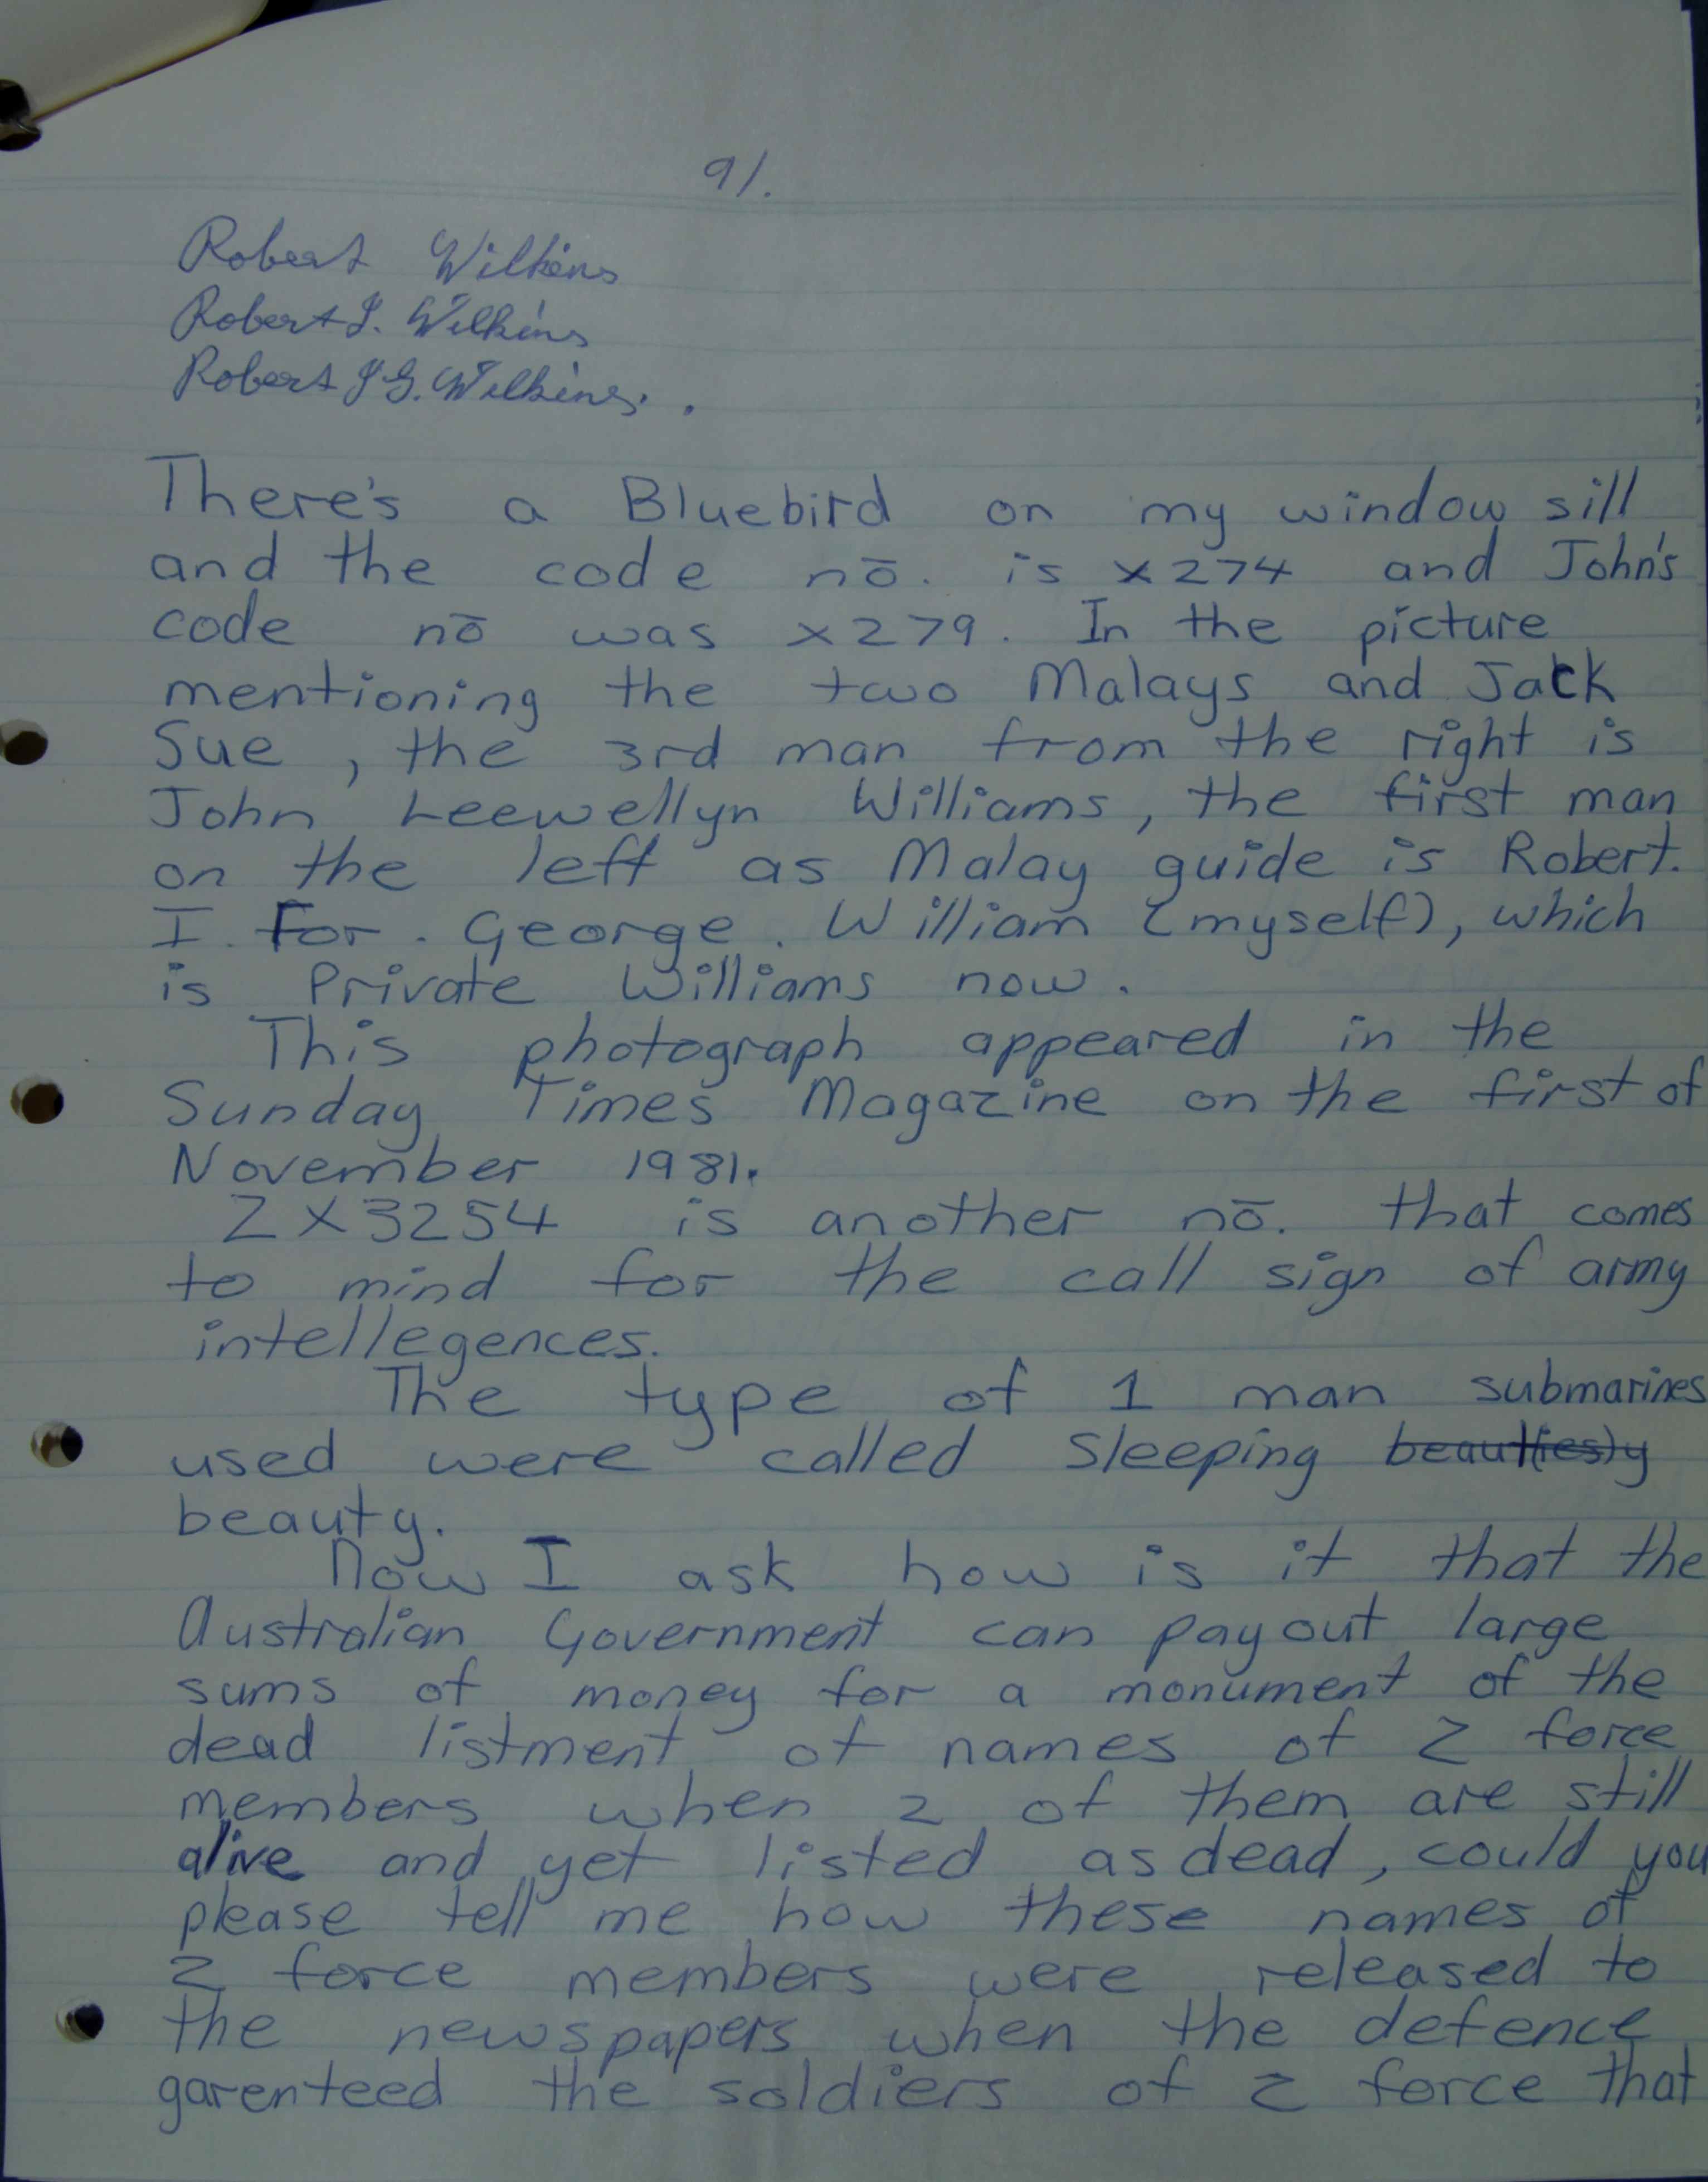 91.
Robert Wilkins
Robert I. Wilkins
Robert I G. Wilkins. .
There's a Bluebird on my window sill
and the code nō. is x274 and John's
code nō was x279. In the picture
mentioning the two Malays and Jack
Sue, the 3rd man from the right is
John Leewellyn Williams, the first man
on the left as Malay guide is Robert.
I. For. George. William (myself), which
is Private Williams now.
This photograph appeared in the
Sunday Times Magazine on the first of
November 1981.
ZX3254 is another nō. that comes
to mind for the call sign of army
intellegences.
The type of 1 man submarines
used were called Sleeping beaut(ies)y
beauty.
Now I ask how is it that the
Australian Government can pay out large
sums of money for a monument of the
dead listment of names of Z force
members when 2 of them are still
alive and yet listed as dead, could you
please tell me how these names of
Z force members were released to
the newspapers when the defence
garenteed the soldiers of Z force that